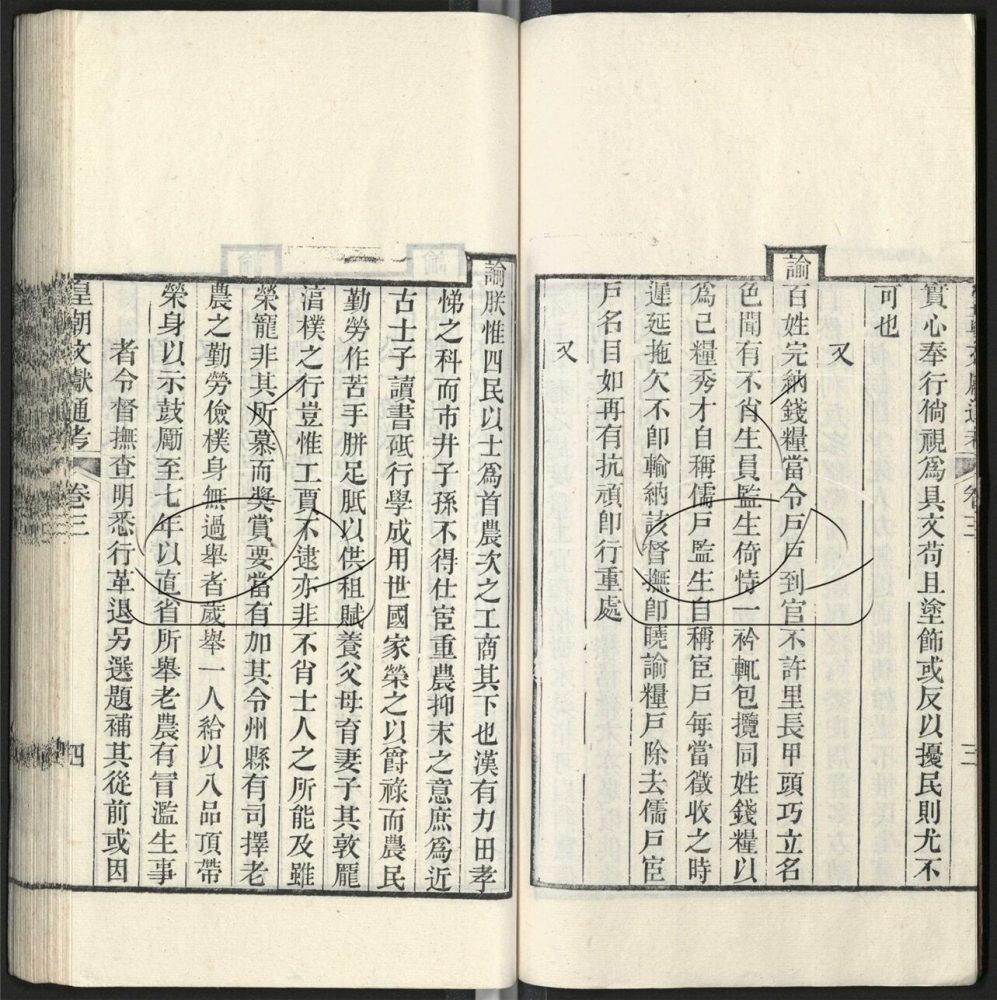 實心奉行倘視爲具文苟且塗飾或反以擾民則尤不
可也
又
諭百姓完納錢糧當令戶戶到官不許里長甲頭巧立名
色聞有不肖生員監生倚恃一衿輒包攬同姓錢糧以
爲己糧秀才自稱儒戶監生自稱宦戶每當徵收之時
遲延拖欠不卽輸納該督撫卽曉諭糧戶除去儒戶宦
戶名目如再有抗頑卽行重處
又
三
諭朕惟四民以士爲首農次之工商其下也漢有力田孝
悌之科而市井子孫不得仕宦重農抑末之意庶爲近
古士子讀書砥行學成用世國家榮之以爵祿而農民
勤勞作苦手胼足胝以供租賦養父母育妻子其敦龐
湻樸之行豈惟工賈不逮亦非不肖士人之所能及雖
榮寵非其所慕而奬賞要當有加其令州縣有司擇老
農之勤勞儉樸身無過舉者歲舉一人給以八品頂帶
榮身以示鼓勵至七年以直省所舉老農有冒濫生事
者令督撫查明悉行革退另選題補其從前或因
皇朝文獻通考 卷三 四